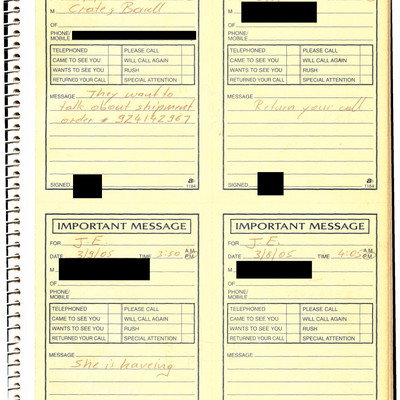 M Crate & Barell
OF
PHONE/
MOBILE
TELEPHONED PLEASE CALL
CAME TO SEE YOU WILL CALL AGAIN
WANTS TO SEE YOU RUSH
RETURNED YOUR CALL SPECIAL ATTENTION
MESSAGE They want to
talk about shipment
order # 924142967
SIGNED
1184
M
OF
PHONE/
MOBILE
TELEPHONED PLEASE CALL
CAME TO SEE YOU WILL CALL AGAIN
WANTS TO SEE YOU RUSH
RETURNED YOUR CALL SPECIAL ATTENTION
MESSAGE
Return your call
SIGNED
1184
IMPORTANT MESSAGE
FOR J.E
DATE 3/9/05 TIME 3:50 P.M.
M
OF
PHONE/
MOBILE
TELEPHONED PLEASE CALL
CAME TO SEE YOU WILL CALL AGAIN
WANTS TO SEE YOU RUSH
RETURNED YOUR CALL SPECIAL ATTENTION
MESSAGE
She is haveing
IMPORTANT MESSAGE
FOR J.E
DATE 3/8/05 TIME 4:05 A.M. P.M.
M
OF
PHONE/
MOBILE
TELEPHONED PLEASE CALL
CAME TO SEE YOU WILL CALL AGAIN
WANTS TO SEE YOU RUSH
RETURNED YOUR CALL SPECIAL ATTENTION
MESSAGE